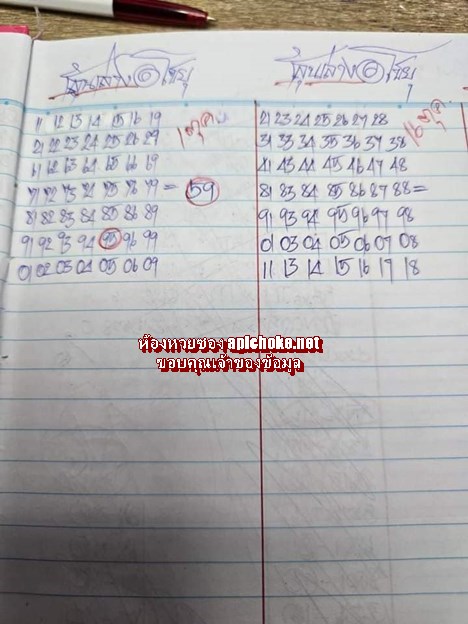 11 12 13 14 15 16 19
21 22 23 24 25 26 29
61 62 63 64 65 66 69
71 72 73 74 75 76 79 = 59
81 82 83 84 85 86 89
91 92 93 94 95 96 99
01 02 03 04 05 06 09
21 23 24 25 26 27 28
31 33 34 35 36 37 38
41 43 44 45 46 47 48
81 83 84 85 86 87 88 =
91 93 94 95 96 97 98
01 03 04 05 06 07 08
11 13 14 15 16 17 18
ห้องหวยซอง apichoke.net
ขอบคุณเจ้าของข้อมูล